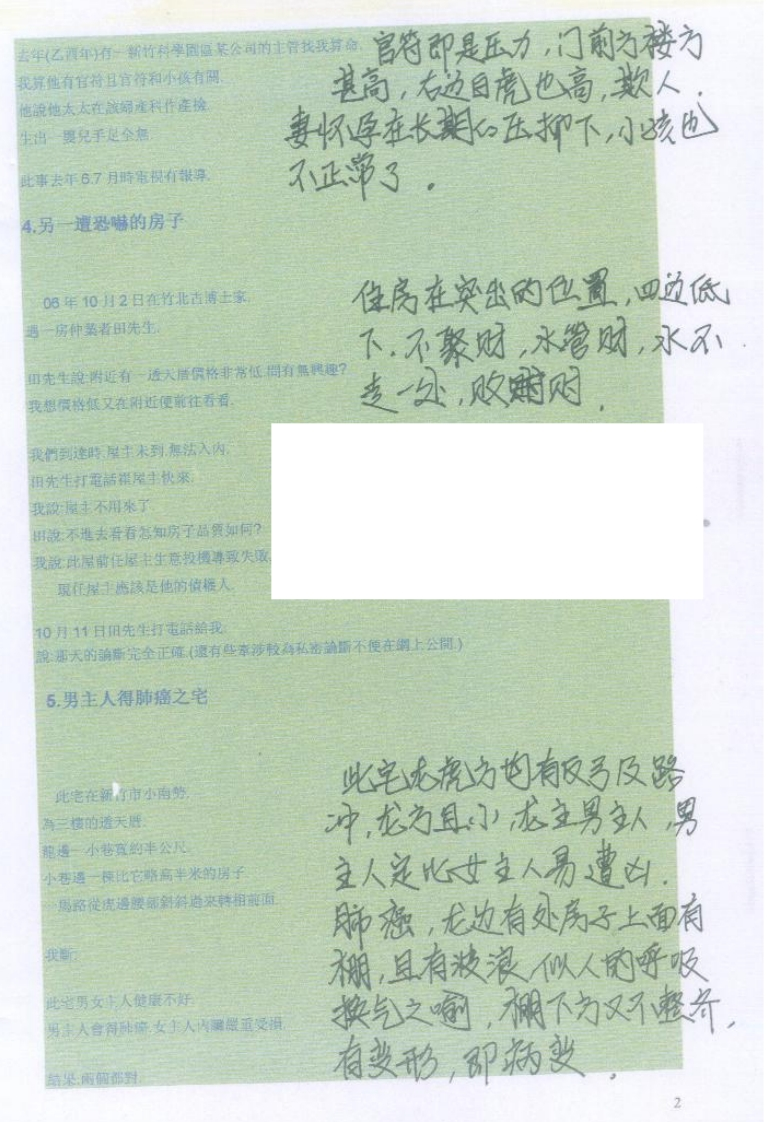 去年(乙酉年)有一新竹科學園區某公司的主管找我算命.
我算他有官符且官符和小孩有關.
他說他太太在該婦產科作產檢.
生出一嬰兒手足全無.
此事去年6.7月時電視有報導.
官符即是压力，门前方楼方
甚高，右边白虎也高，欺人.
妻怀孕在长期的压抑下，小孩也
不正常了。
4.另一遭恐嚇的房子
06年10月2日在竹北古博士家.
遇一房仲業者田先生.
田先生說:附近有一透天厝價格非常低.問有無興趣?
我想價格低又在附近便前往看看.
住房在突出的位置，四边低
下.不聚财，水管财，水不
走一处，败财.
我們到達時.屋主未到.無法入內.
田先生打電話催屋主快來.
我說:屋主不用來了.
田說:不進去看看怎知房子品質如何?
我說:此屋前任屋主生意投機導致失敗.
現任屋主應該是他的債權人.
10月11日田先生打電話給我.
說:那天的論斷完全正確.(還有些牽涉較為私密論斷不便在網上公開.)
5.男主人得肺癌之宅
此宅在新竹市小南勢.
為三樓的透天厝.
龍邊一小巷寬約半公尺.
小巷邊一棟比它略高半米的房子.
馬路從虎邊腰部斜斜過來轉相前面.
我斷:
此宅男女主人健康不好.
男主人會得肺癌.女主人內臟嚴重受損.
結果:兩個都對.
此宅龙虎方均有反弓及路
冲，龙方且小，龙主男主人，男
主人定比女主人易遭凶.
肺癌，龙边有处房子上面有
棚，且有波浪，似人的呼吸
换气之喻，棚下方又不整齐，
有变形，即病变.
2